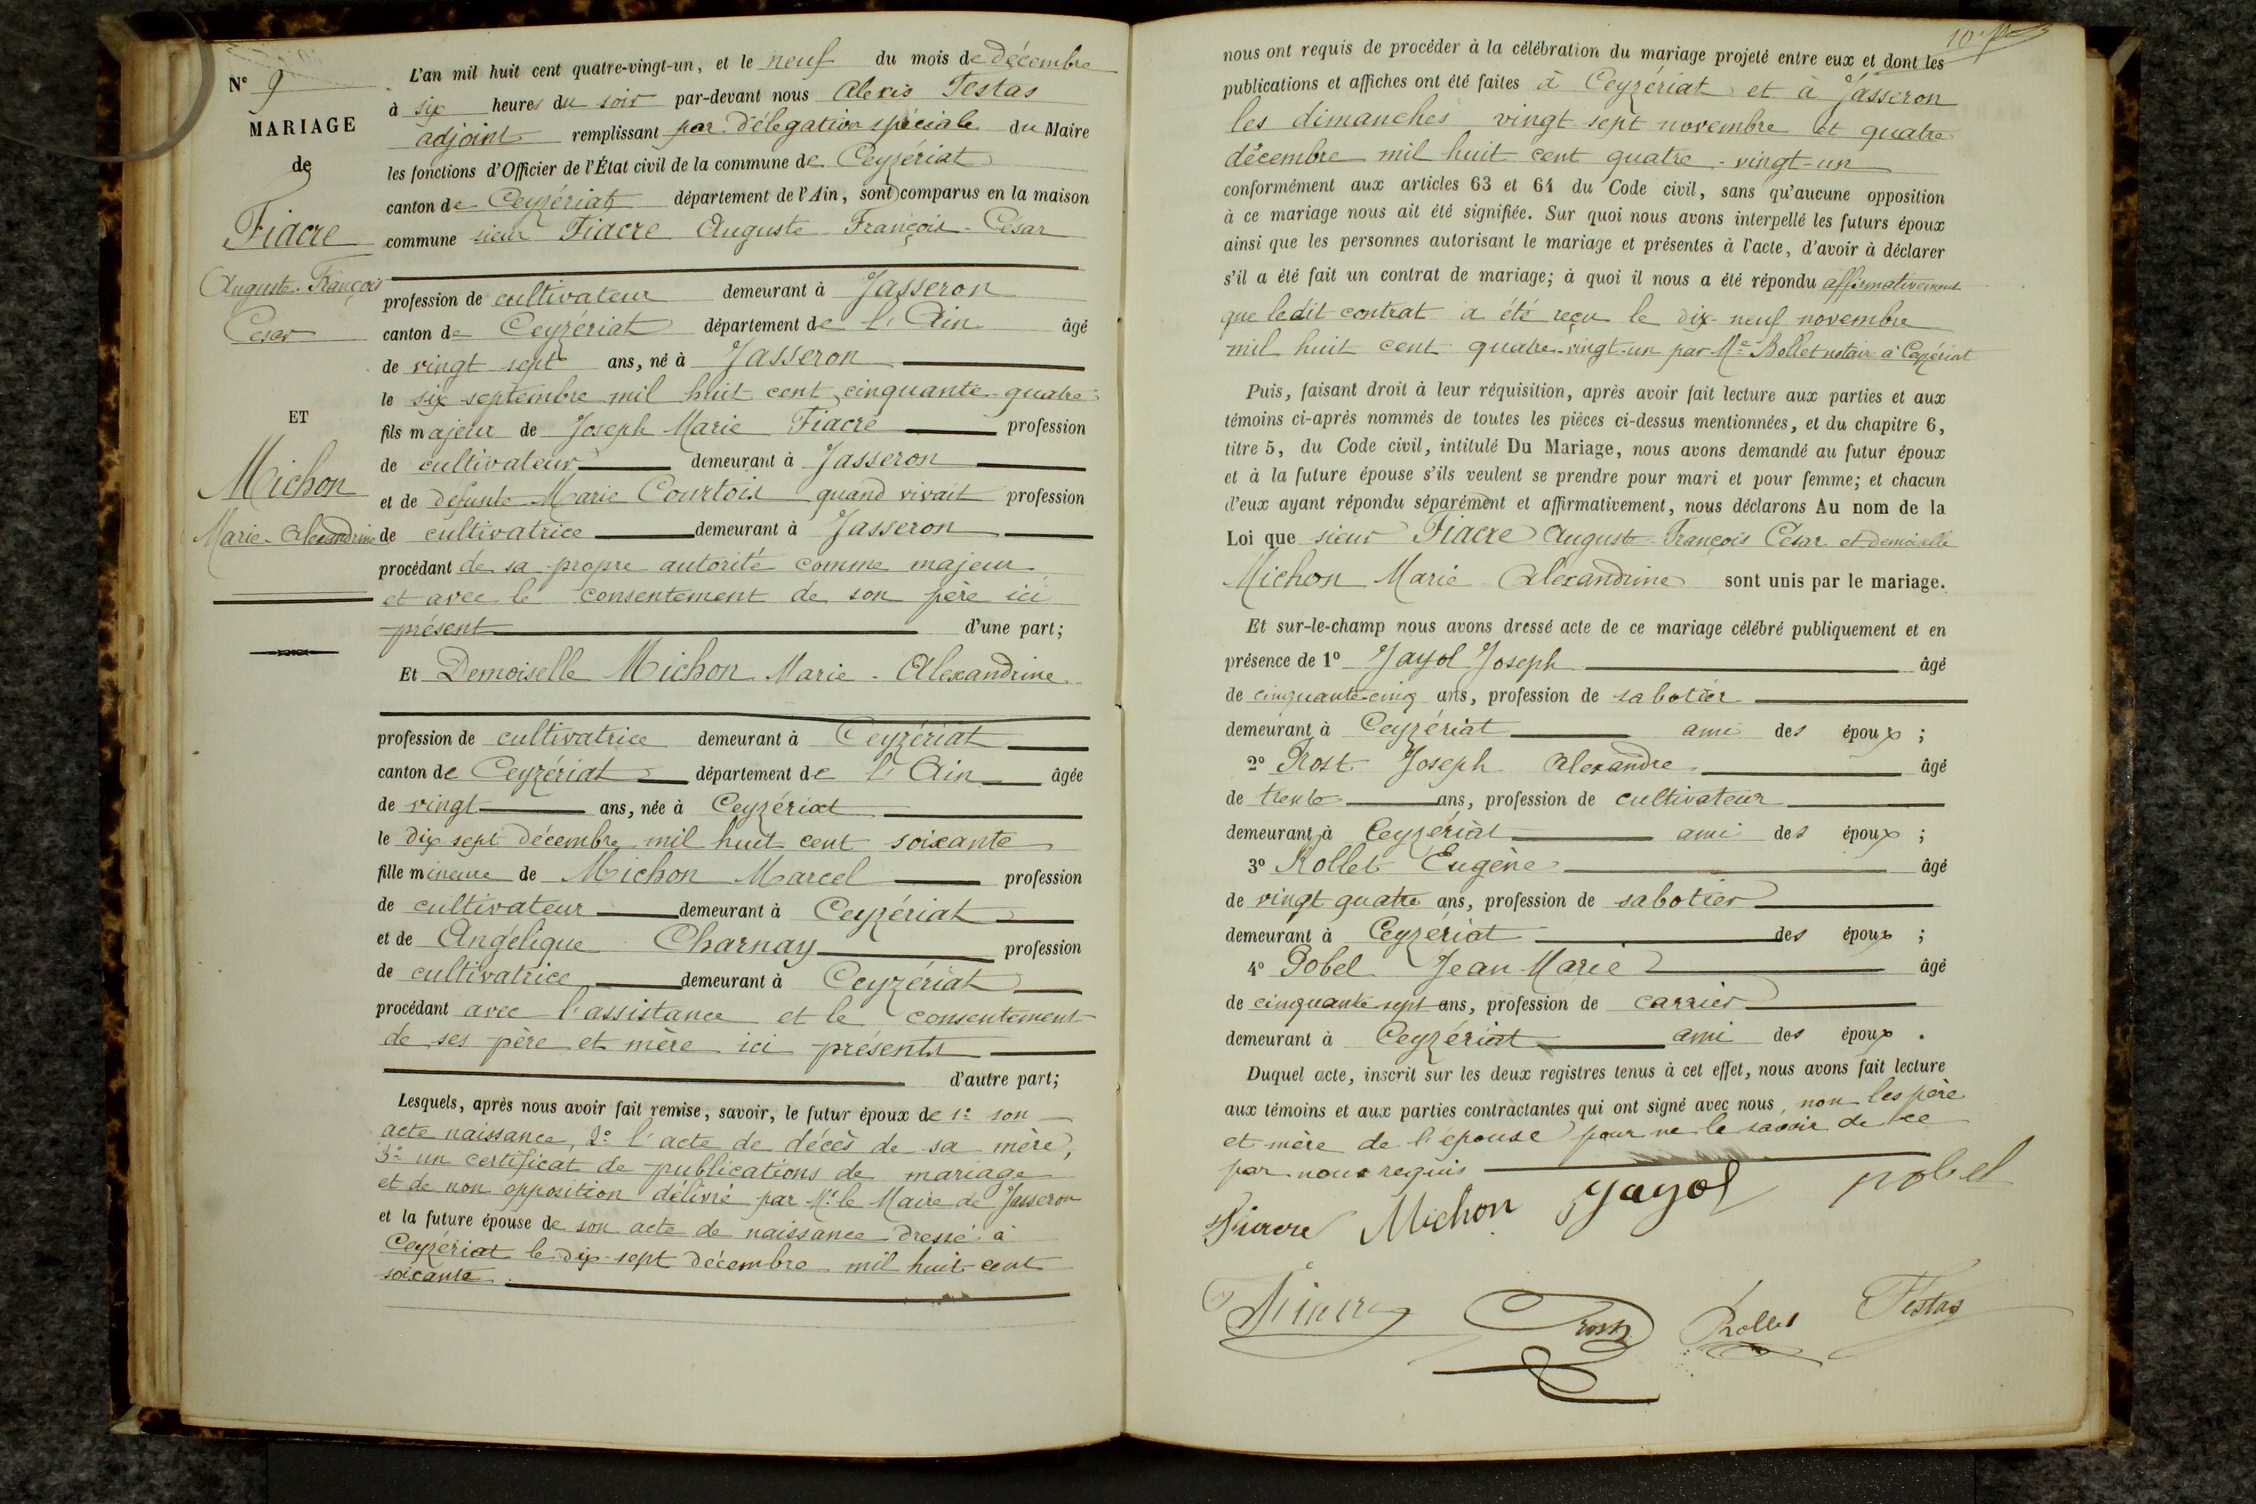 N° 9
MARIAGE
de
Fiacre
Auguste François
César
ET
Michon
Marie-Alexandrine
L'an mil huit cent quatre-vingt-un, et le neuf du mois de décembre
à six heures du soir par-devant nous Alexis Testas
adjoint remplissant par délégation spéciale du Maire
les fonctions d'Officier de l'État civil de la commune de Ceyzériat
canton de Ceyzériat département de l'Ain, sont comparus en la maison
commune sieur Fiacre Auguste François-César
profession de cultivateur demeurant à Jasseron
canton de Ceyzériat département de l'Ain âgé
de vingt sept ans, né à Jasseron
le six septembre mil huit cent cinquante-quatre
fils majeur de Joseph Marie Fiacre profession
de cultivateur demeurant à Jasseron
et de défunte Marie Courtois quand vivait profession
de cultivatrice demeurant à Jasseron
procédant de sa propre autorité comme majeur
et avec le consentement de son père ici
présent d'une part;
Et Demoiselle Michon Marie-Alexandrine
profession de cultivatrice demeurant à Ceyzériat
canton de Ceyzériat département de l'Ain âgée
de vingt ans, née à Ceyzériat
le dix sept décembre mil huit cent soixante
fille mineure de Michon Marcel profession
de cultivateur demeurant à Ceyzériat
et de Angélique Charnay profession
de cultivatrice demeurant à Ceyzériat
procédant avec l'assistance et le consentement
de ses père et mère ici présents
d'autre part;
Lesquels, après nous avoir fait remise, savoir, le futur époux de 1° son
acte naissance, 2° l'acte de décès de sa mère,
3° un certificat de publications de mariage
et de non opposition délivré par Mr le Maire de Jasseron
et la future épouse de son acte de naissance dressé à
Ceyzériat le dix-sept décembre mil huit cent
soixante
nous ont requis de procéder à la célébration du mariage projeté entre eux et dont les
publications et affiches ont été faites à Ceyzériat et à Jasseron
les dimanches vingt-sept novembre et quatre
décembre mil huit cent quatre-vingt-un
conformément aux articles 63 et 64 du Code civil, sans qu'aucune opposition
à ce mariage nous ait été signifiée. Sur quoi nous avons interpellé les futurs époux
ainsi que les personnes autorisant le mariage et présentes à l'acte, d'avoir à déclarer
s'il a été fait un contrat de mariage; à quoi il nous a été répondu affirmativement
que ledit contrat a été reçu le dix-neuf novembre
mil huit cent quatre-vingt-un par Me Bollet notaire à Ceyzériat
Puis, faisant droit à leur réquisition, après avoir fait lecture aux parties et aux
témoins ci-après nommés de toutes les pièces ci-dessus mentionnées, et du chapitre 6,
titre 5, du Code civil, intitulé Du Mariage, nous avons demandé au futur époux
et à la future épouse s'ils veulent se prendre pour mari et pour femme; et chacun
d'eux ayant répondu séparément et affirmativement, nous déclarons Au nom de la
Loi que sieur Fiacre Auguste-François César et demoiselle
Michon Marie Alexandrine sont unis par le mariage.
Et sur-le-champ nous avons dressé acte de ce mariage célébré publiquement et en
présence de 1° Jayol Joseph âgé
de cinquante-cinq ans, profession de sabotier
demeurant à Ceyzériat ami des époux ;
2° Prost Joseph Alexandre âgé
de trente ans, profession de cultivateur
demeurant à Ceyzériat ami des époux ;
3° Rollet Eugène âgé
de vingt quatre ans, profession de sabotier
demeurant à Ceyzériat des époux ;
4° Gobel Jean Marie âgé
de cinquante sept ans, profession de carrier
demeurant à Ceyzériat ami des époux .
Duquel acte, inscrit sur les deux registres tenus à cet effet, nous avons fait lecture
aux témoins et aux parties contractantes qui ont signé avec nous, non les père
et mère de l'épouse pour ne le savoir de ce
par nous requis
Fiacre Michon Jayol
Fiacre Prost Rollet Testas